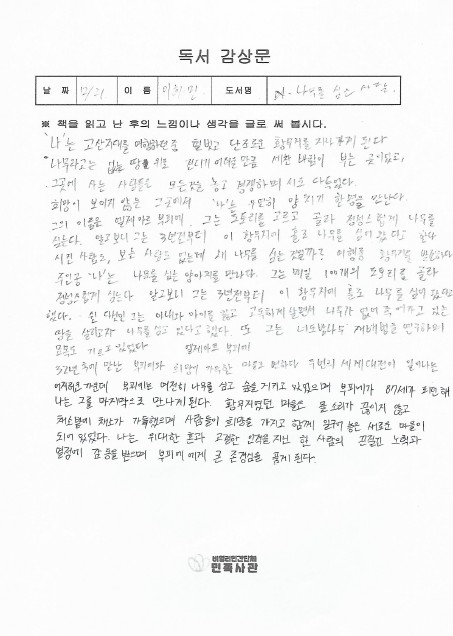 독서 감상문
날 짜 이 름 도서명 나무를 심은 사람
※ 책을 읽고 난 후의 느낌이나 생각을 글로 써 봅시다.
'나'는 고산지대를 여행하던 중 헐벗고 단조로운 황무지를 지나가게 된다
나무라고는 없는 땅 위로 견디기 어려울 만큼 세찬 바람이 부는 곳이었고,
그곳에 사는 사람들은 모든것을 놓고 경쟁하며 서로 다투었다.
희망이 보이지 않는 그곳에서 '나'는 우연히 양치기 한명을 만난다.
그의 이름을 엘제아르 부피에. 그는 도토리를 고르고 골라 정성스럽게 나무를
심는다. 알고보니 그는 3년전부터 이 황무지에 홀로 나무를 심어 왔다고 한다
시킨 사람도, 보는 사람도 없는데
주인공 '나'는 나무를 심는 양치기를 만난다. 그는 매일 100개의 도토리를 골라
정성스럽게 심는다 알고보니 그는 3년전부터 이 황무지에 홀로 나무를 심어 왔
했다. 그는 아내와 아이를 잃고 고독하게 살면서 나무가 없어 죽어가고 있는
땅을 살리고자 나무를 심고 있다고 했다. 또 그는 너도밤나무 재배법을 연구하며
묘목도 기르고 있었다 엘제아르 부피에
어지러운 가운데 부피에는 여전히 나무를 심고 숲을 가꾸고 있었으며 부피에가 87세가 되던 해
나는 그를 마지막으로 만나게 된다. 황무지였던 마을은 물 소리가 끊이지 않고
채소밭에 채소가 가득했으며 사람들이 희망을 가지고 함께 일궈 놓은 새로운 마을이
되어 있었다. 나는 위대한 혼과 고결한 인격을 지닌 한 사람의 끈질긴 노력과
열정에 감동을 받으며 부피에에게 큰 존경심을 품게 된다.
비영리민간단체
민족사관